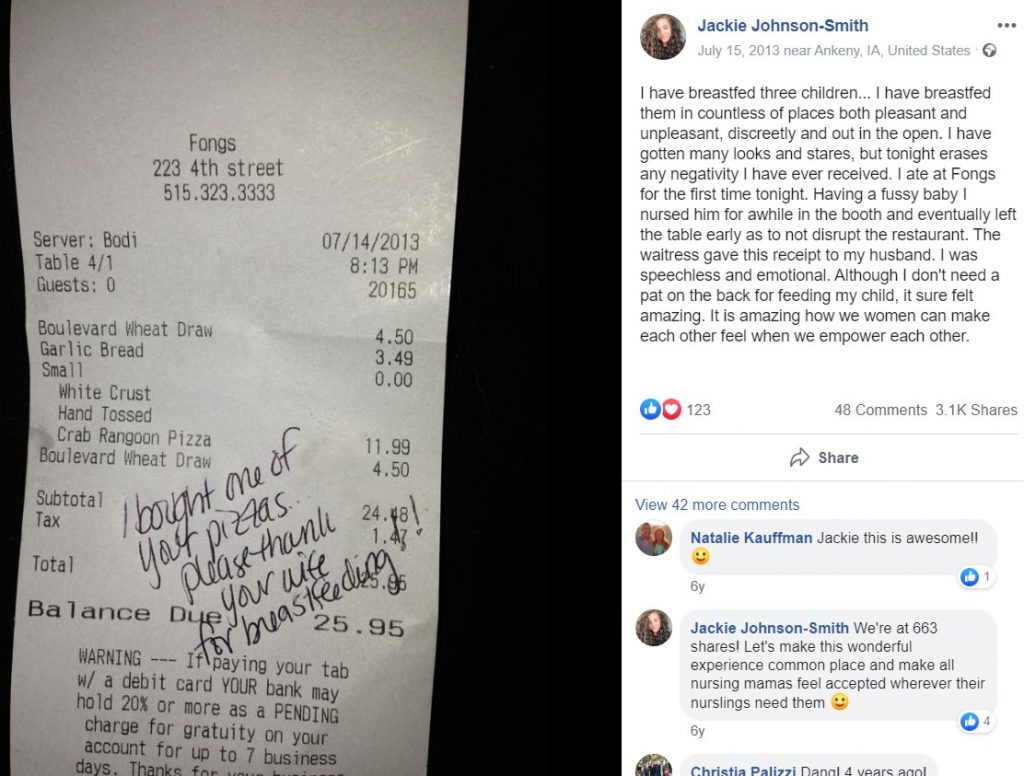 Fongs
223 4th street
515.323.3333
Server: Bodi 07/14/2013
Table 4/1 8:13 PM
Guests: 0 20165
Boulevard Wheat Draw 4.50
Garlic Bread 3.49
Small 0.00
White Crust
Hand Tossed
Crab Rangoon Pizza 11.99
Boulevard Wheat Draw 4.50
Subtotal 24.48
Tax 1.47
Total 25.95
Balance Due 25.95
I bought one of
your pizzas.
please thank
your wife
for breastfeeding!
WARNING --- If paying your tab
w/ a debit card YOUR bank may
hold 20% or more as a PENDING
charge for gratuity on your
account for up to 7 business
days. Thanks for your business
Jackie Johnson-Smith
July 15, 2013 near Ankeny, IA, United States ·
I have breastfed three children... I have breastfed
them in countless of places both pleasant and
unpleasant, discreetly and out in the open. I have
gotten many looks and stares, but tonight erases
any negativity I have ever received. I ate at Fongs
for the first time tonight. Having a fussy baby I
nursed him for awhile in the booth and eventually left
the table early as to not disrupt the restaurant. The
waitress gave this receipt to my husband. I was
speechless and emotional. Although I don't need a
pat on the back for feeding my child, it sure felt
amazing. It is amazing how we women can make
each other feel when we empower each other.
123 48 Comments 3.1K Shares
Share
View 42 more comments
Natalie Kauffman Jackie this is awesome!!
1
6y
Jackie Johnson-Smith We're at 663
shares! Let's make this wonderful
experience common place and make all
nursing mamas feel accepted wherever their
nurslings need them
4
6y
Christia Palizzi Dang! 4 years ago!